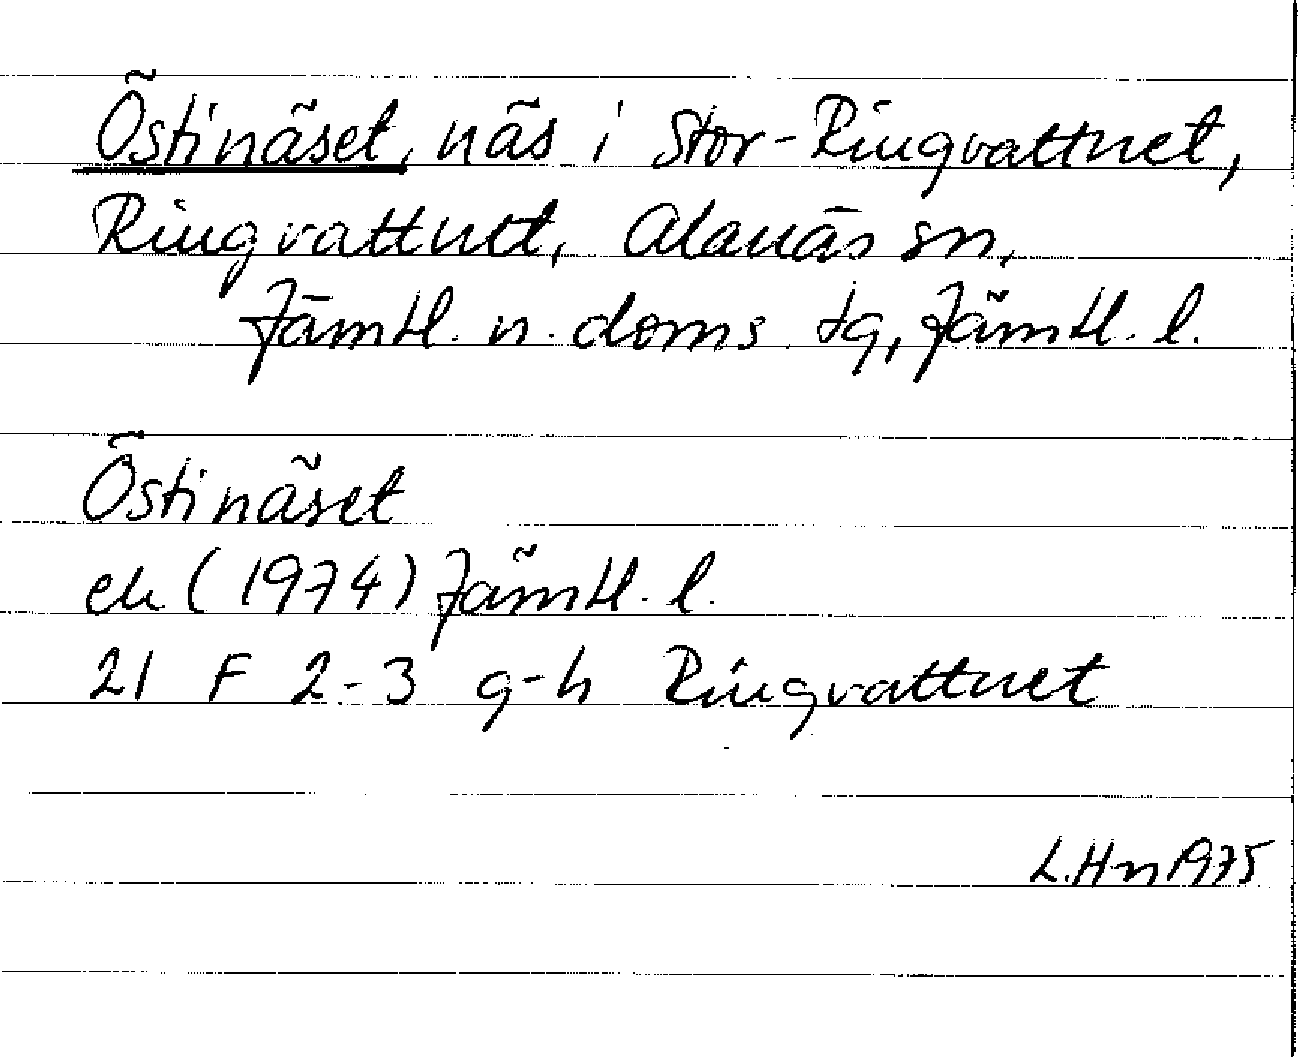 Östinäset, näs i Stor-Ringvattnet,
Ringvattnet, Alanäs sn,
Jämtl. n. doms. tg, Jämtl. l.
Östinäset
ek (1974) Jämtl. l.
21 F 2-3 g-h Ringvattnet
L.Hn 1975